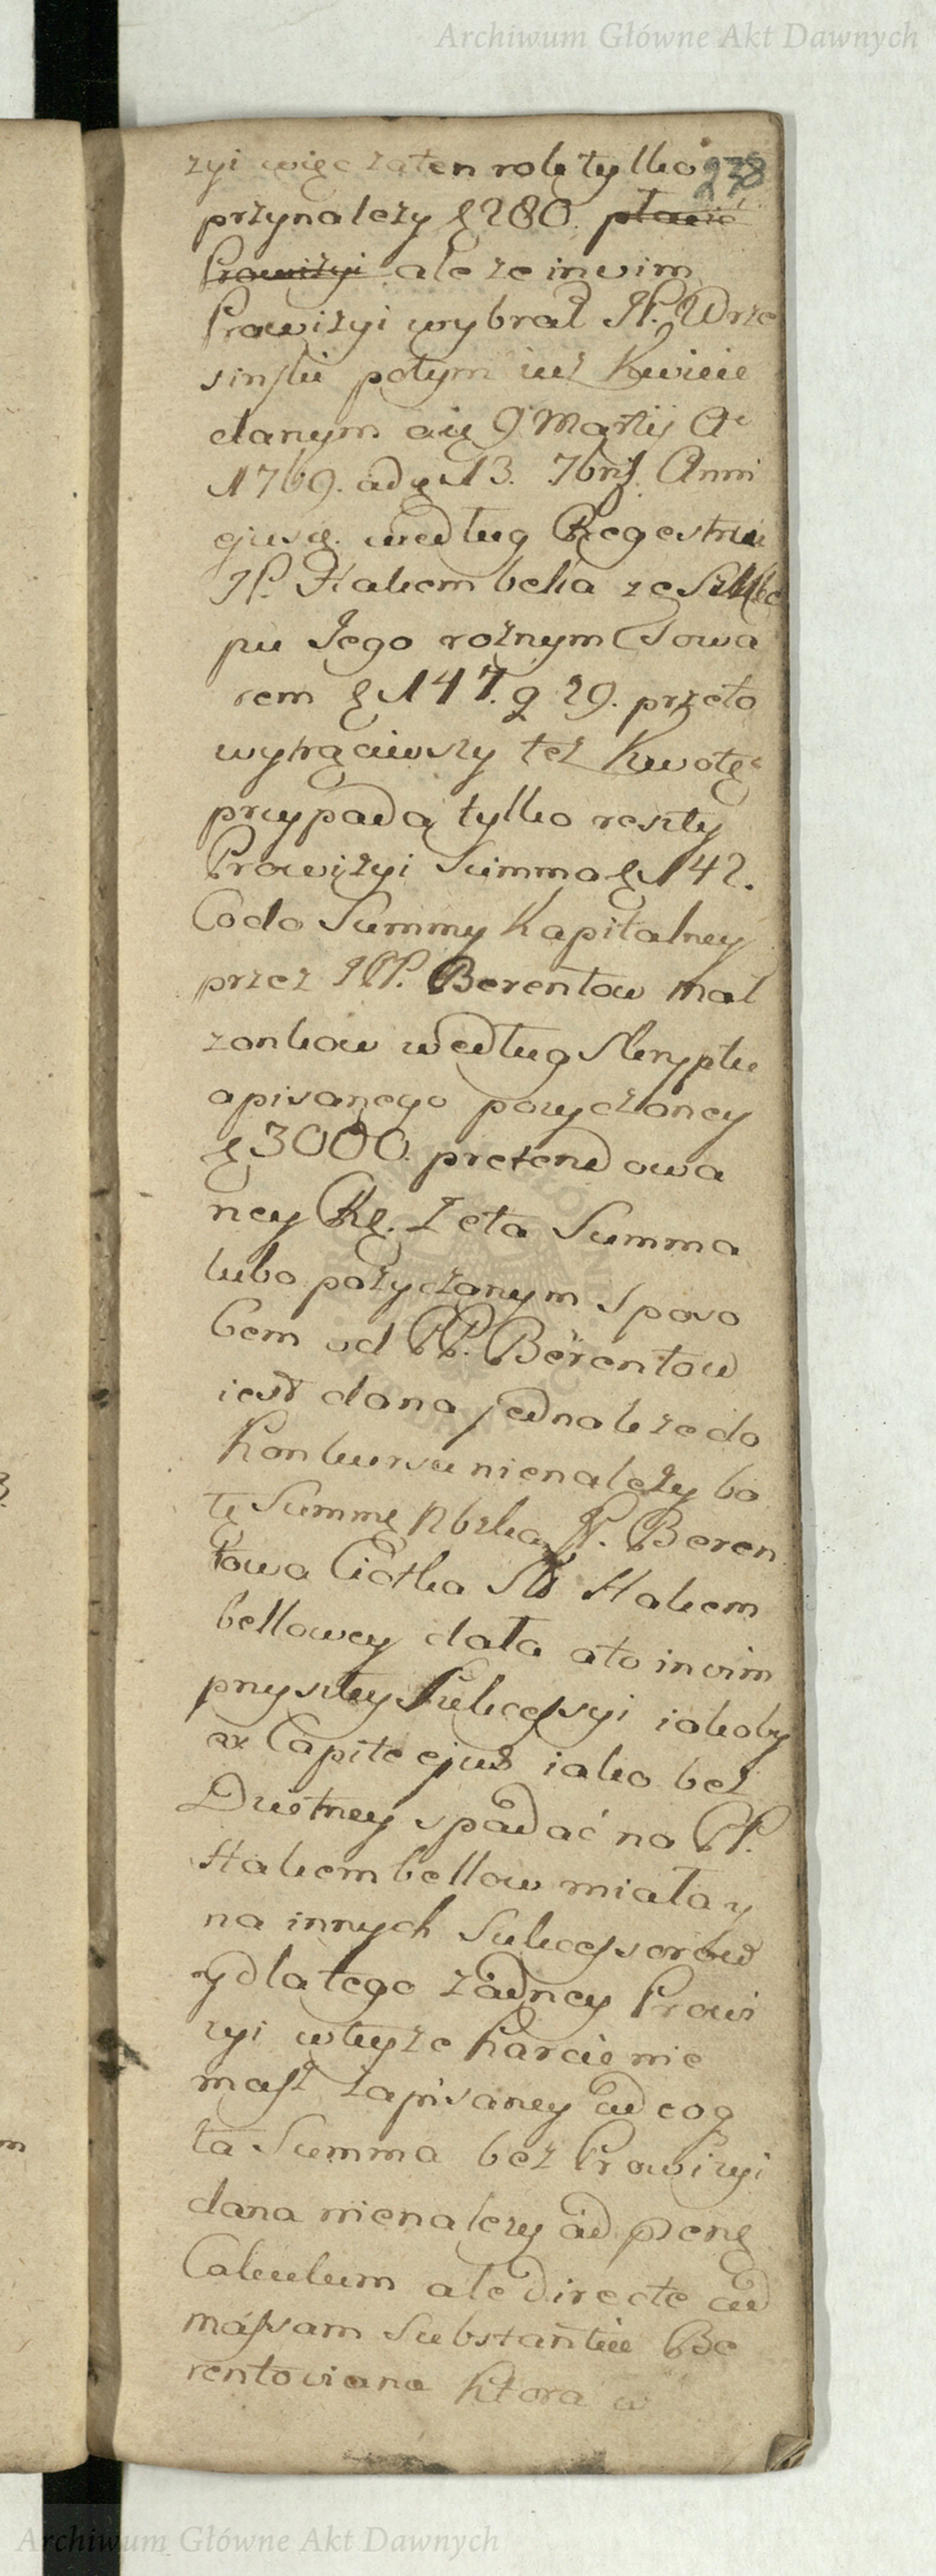 Archiwum Główne Akt Dawnych
238
zyi więc zaten rok tylko
przynależy ƶ 280. płacić
Prowizyi ale ze in vim
Prowizyi wybrał JP. Wrze
sinski potym iuż Kwicie
danym die 9 Martij Ao
1769. ad d 13. 7bris Anni
ejusd. według Regestru
JP. Hakembeka ze Skle
pu Jego rożnym Towa
rem ƶ 147. g 29. przeto
wytrąciwszy też Kwotę
przypada tylko reszty
Prowizyi Summa ƶ 142.
Co do Summy Kapitalney
przez JPP. Berentow mał
żonkow według Skryptu
opisanego pozyczoney
ƶ 3000. pretendowa
ney Rg. Ze ta Summa
lubo pożyczonym sposo
bem od PP. Berentow
iest dana jednakże do
Konkursu nienależy bo
tę Summę Nbzka JP. Beren
towa Ciotka JP Hakem
bellowey dała a to in vim
przyszłey Sukcessyi iakoby
ex Capite ejus iako bez
Dzietney spadać na PP.
Hakembellow miała y
na innych Sukcessorow
y dla tego żadney Prowi
zyi w teyże Karcie nie
masz zapisaney ad eoq
ta Summa bez Prowizyi
dana nienalezy ad
Calculum ale directe ad
massam Substantiae Be
rentoviana ktora w
Archiwum Główne Akt Dawnych